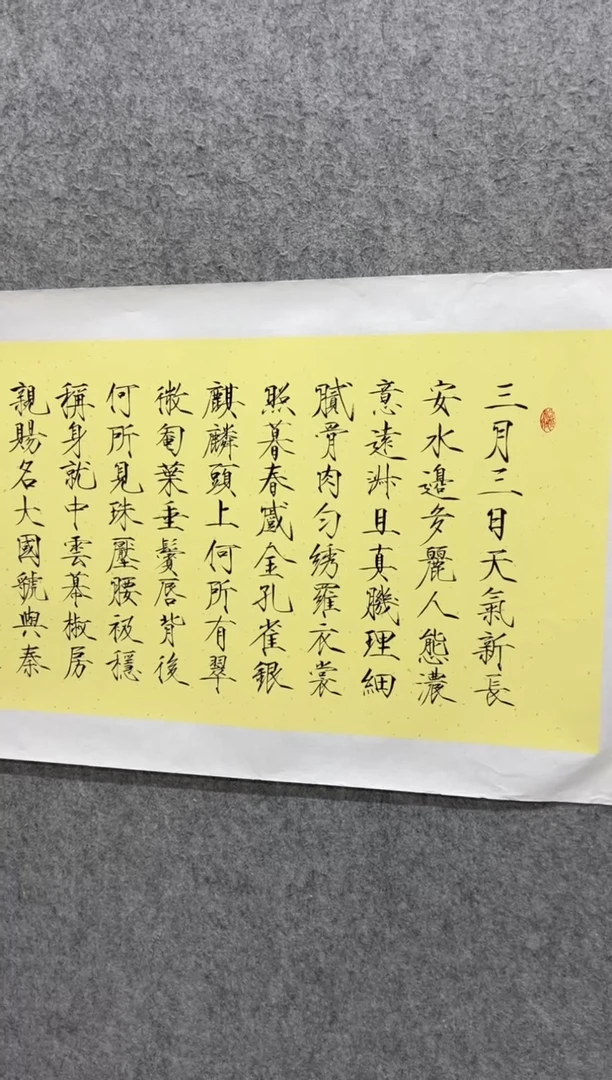 三月三日天氣新長
安水邊多麗人態濃
意遠淋且真膱理細
膩骨肉匀绣羅衣裳
照暮春蹙金孔雀銀
麒麟頭上何所有翠
微匎葉垂鬢唇背後
何所見珠壓腰衱穩
稱身就中雲幕椒房
親賜名大國虢與秦